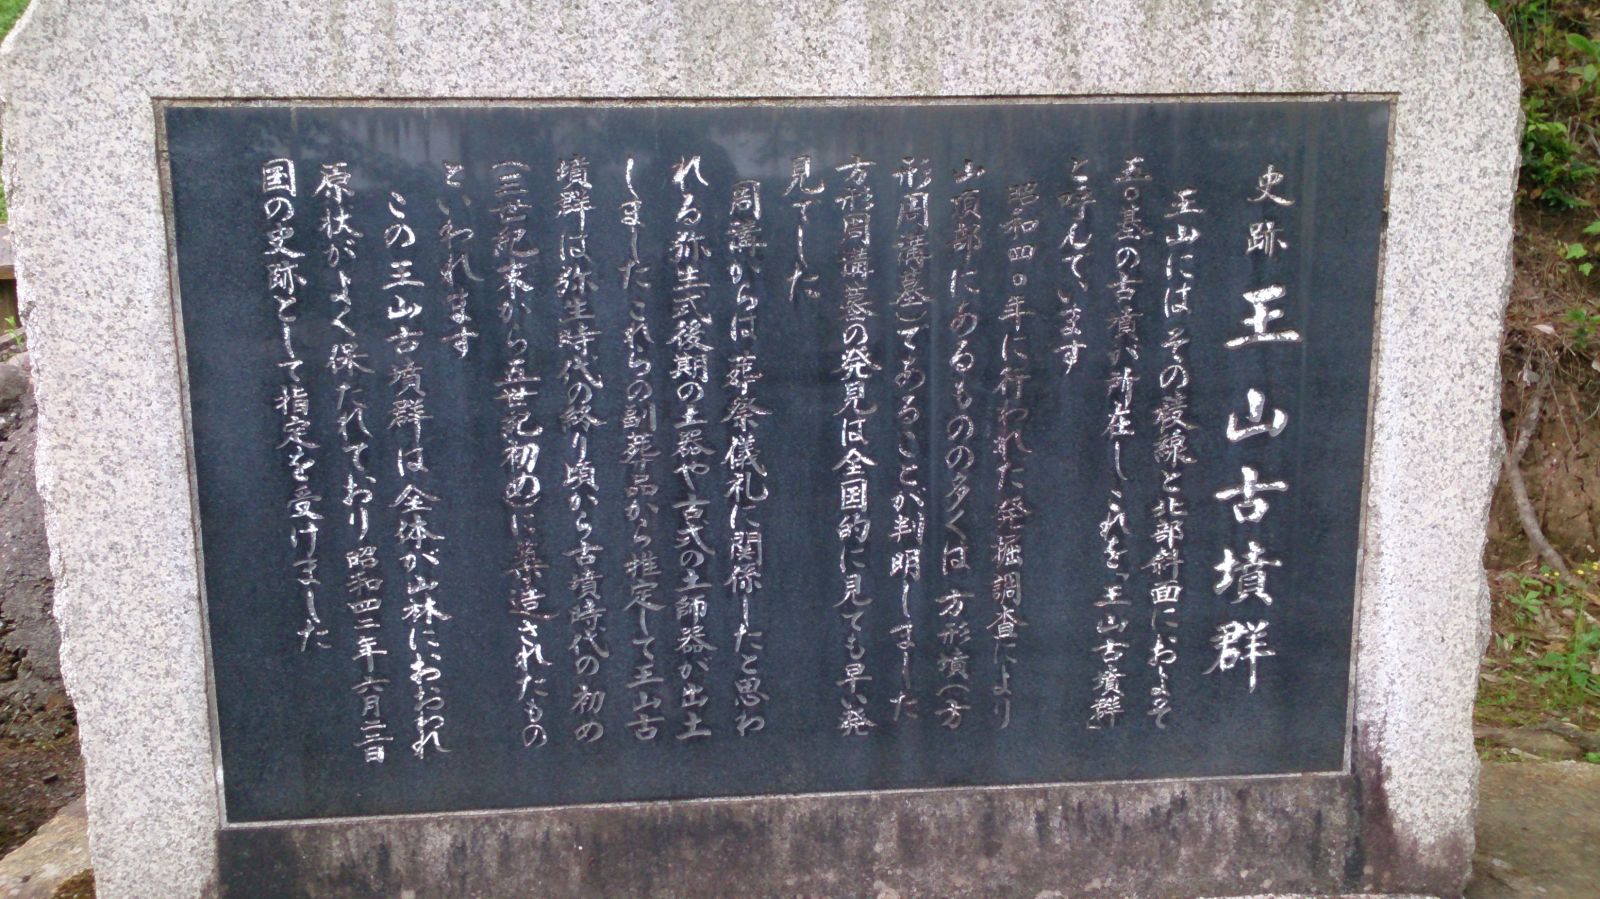 史跡 王山古墳群
王山にはその稜線と北部斜面におよそ
五〇基の古墳が所在しこれを「王山古墳群」
と呼んでいます
昭和四〇年に行われた発掘調査により
山頂部にあるものの多くは方形墳(方
形周溝墓)であることが判明しました
方形周溝墓の発見は全国的に見ても早い発
見でした
周溝からは葬祭儀礼に関係したと思わ
れる弥生式後期の土器や古式の土師器が出土
しましたこれらの副葬品から推定して王山古
墳群は弥生時代の終り頃から古墳時代の初め
(三世紀末から五世紀初め)に築造されたもの
といわれます
この王山古墳群は全体が山林におおわれ
原状がよく保たれており昭和四二年六月二二日
国の史跡として指定を受けました